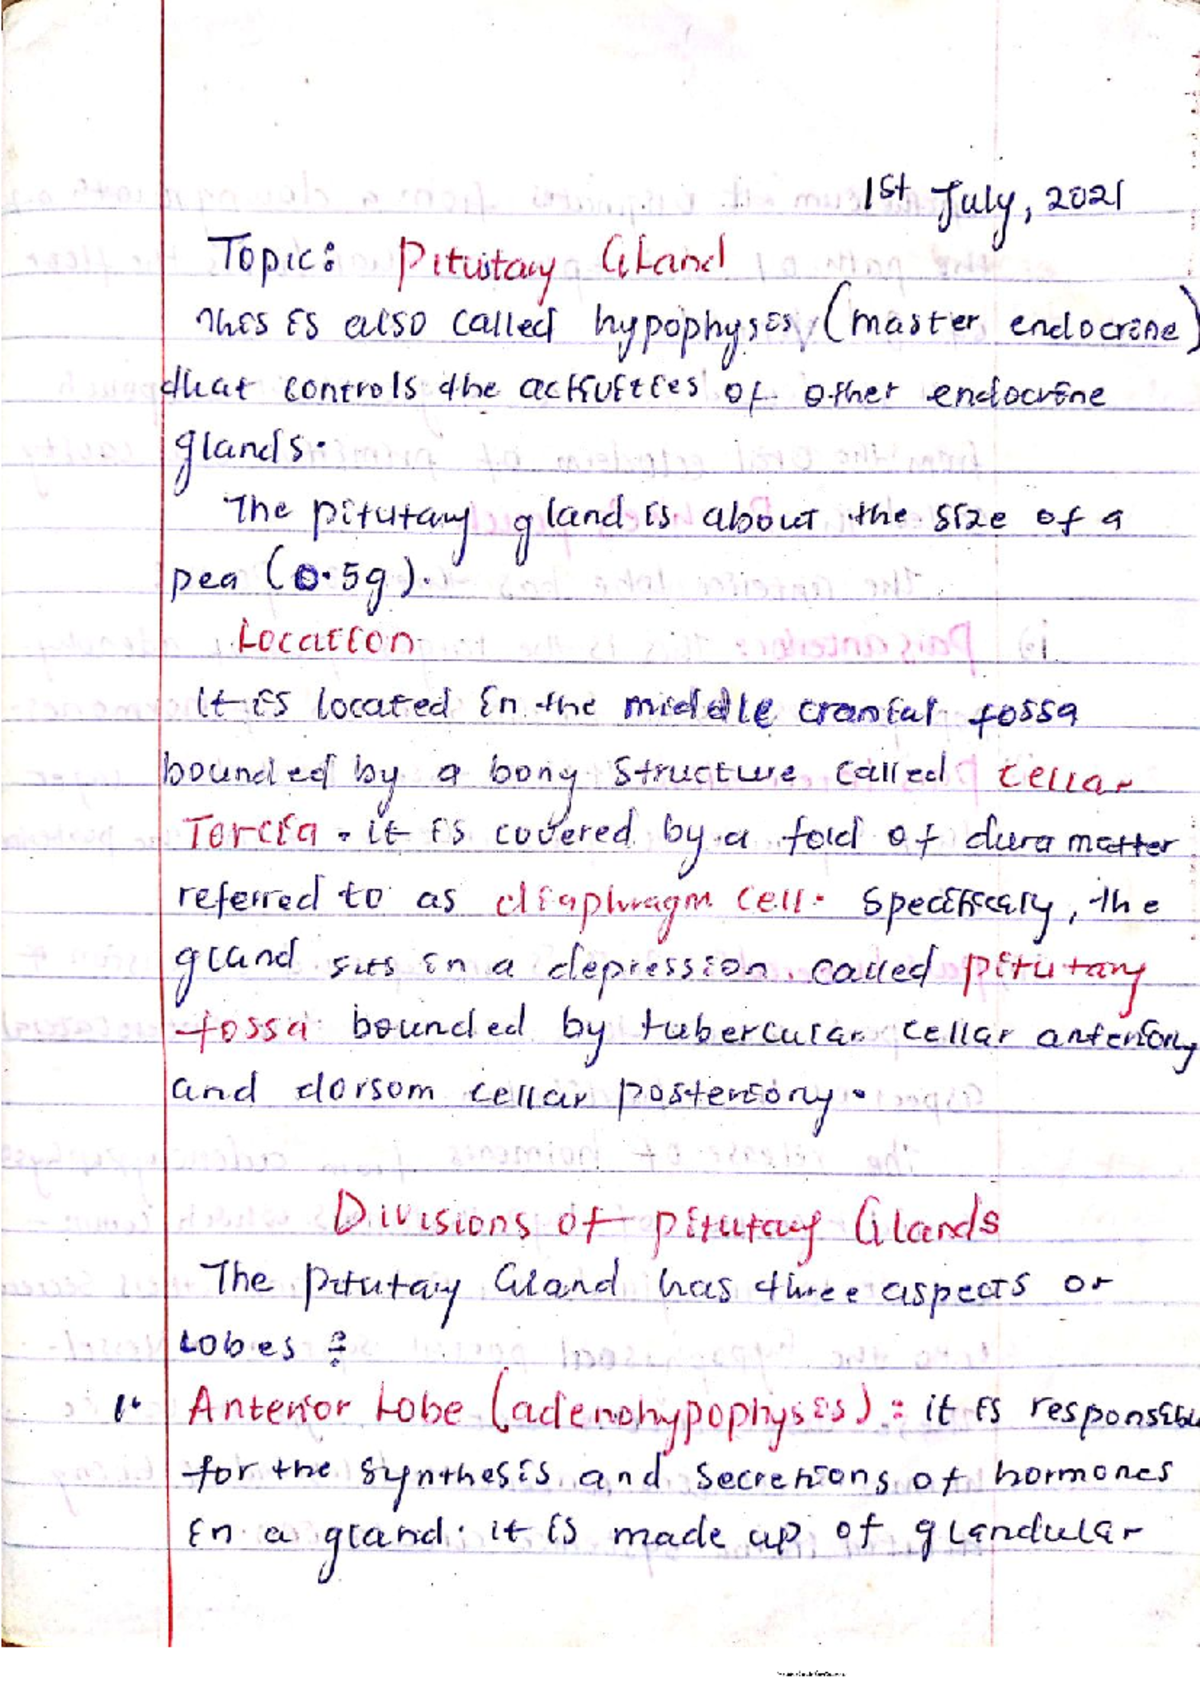 1st July, 2021
Topic: Pitutary Gland
This is also called hypophysis (master endocrine)
that controls the activities of other endocrine
glands.
The pitutary gland is about the size of a
pea (0.5g).
Location
It is located in the middle cranial fossa
bounded by a bony structure called cellar
Torcia. it is covered by a fold of dura matter
referred to as diaphragm cell. Specificaly, the
gland sits in a depression called pitutary
fossa bounded by tubercular cellar anteriorly
and dorsom cellar posteriorly.
Divisions of pitutary Glands
The pitutary Gland has three aspects or
lobes :
1. Anterior Lobe (adenohypophysis) : it is responsible
for the synthesis and secretions of hormones
in a gland. it is made up of glandular